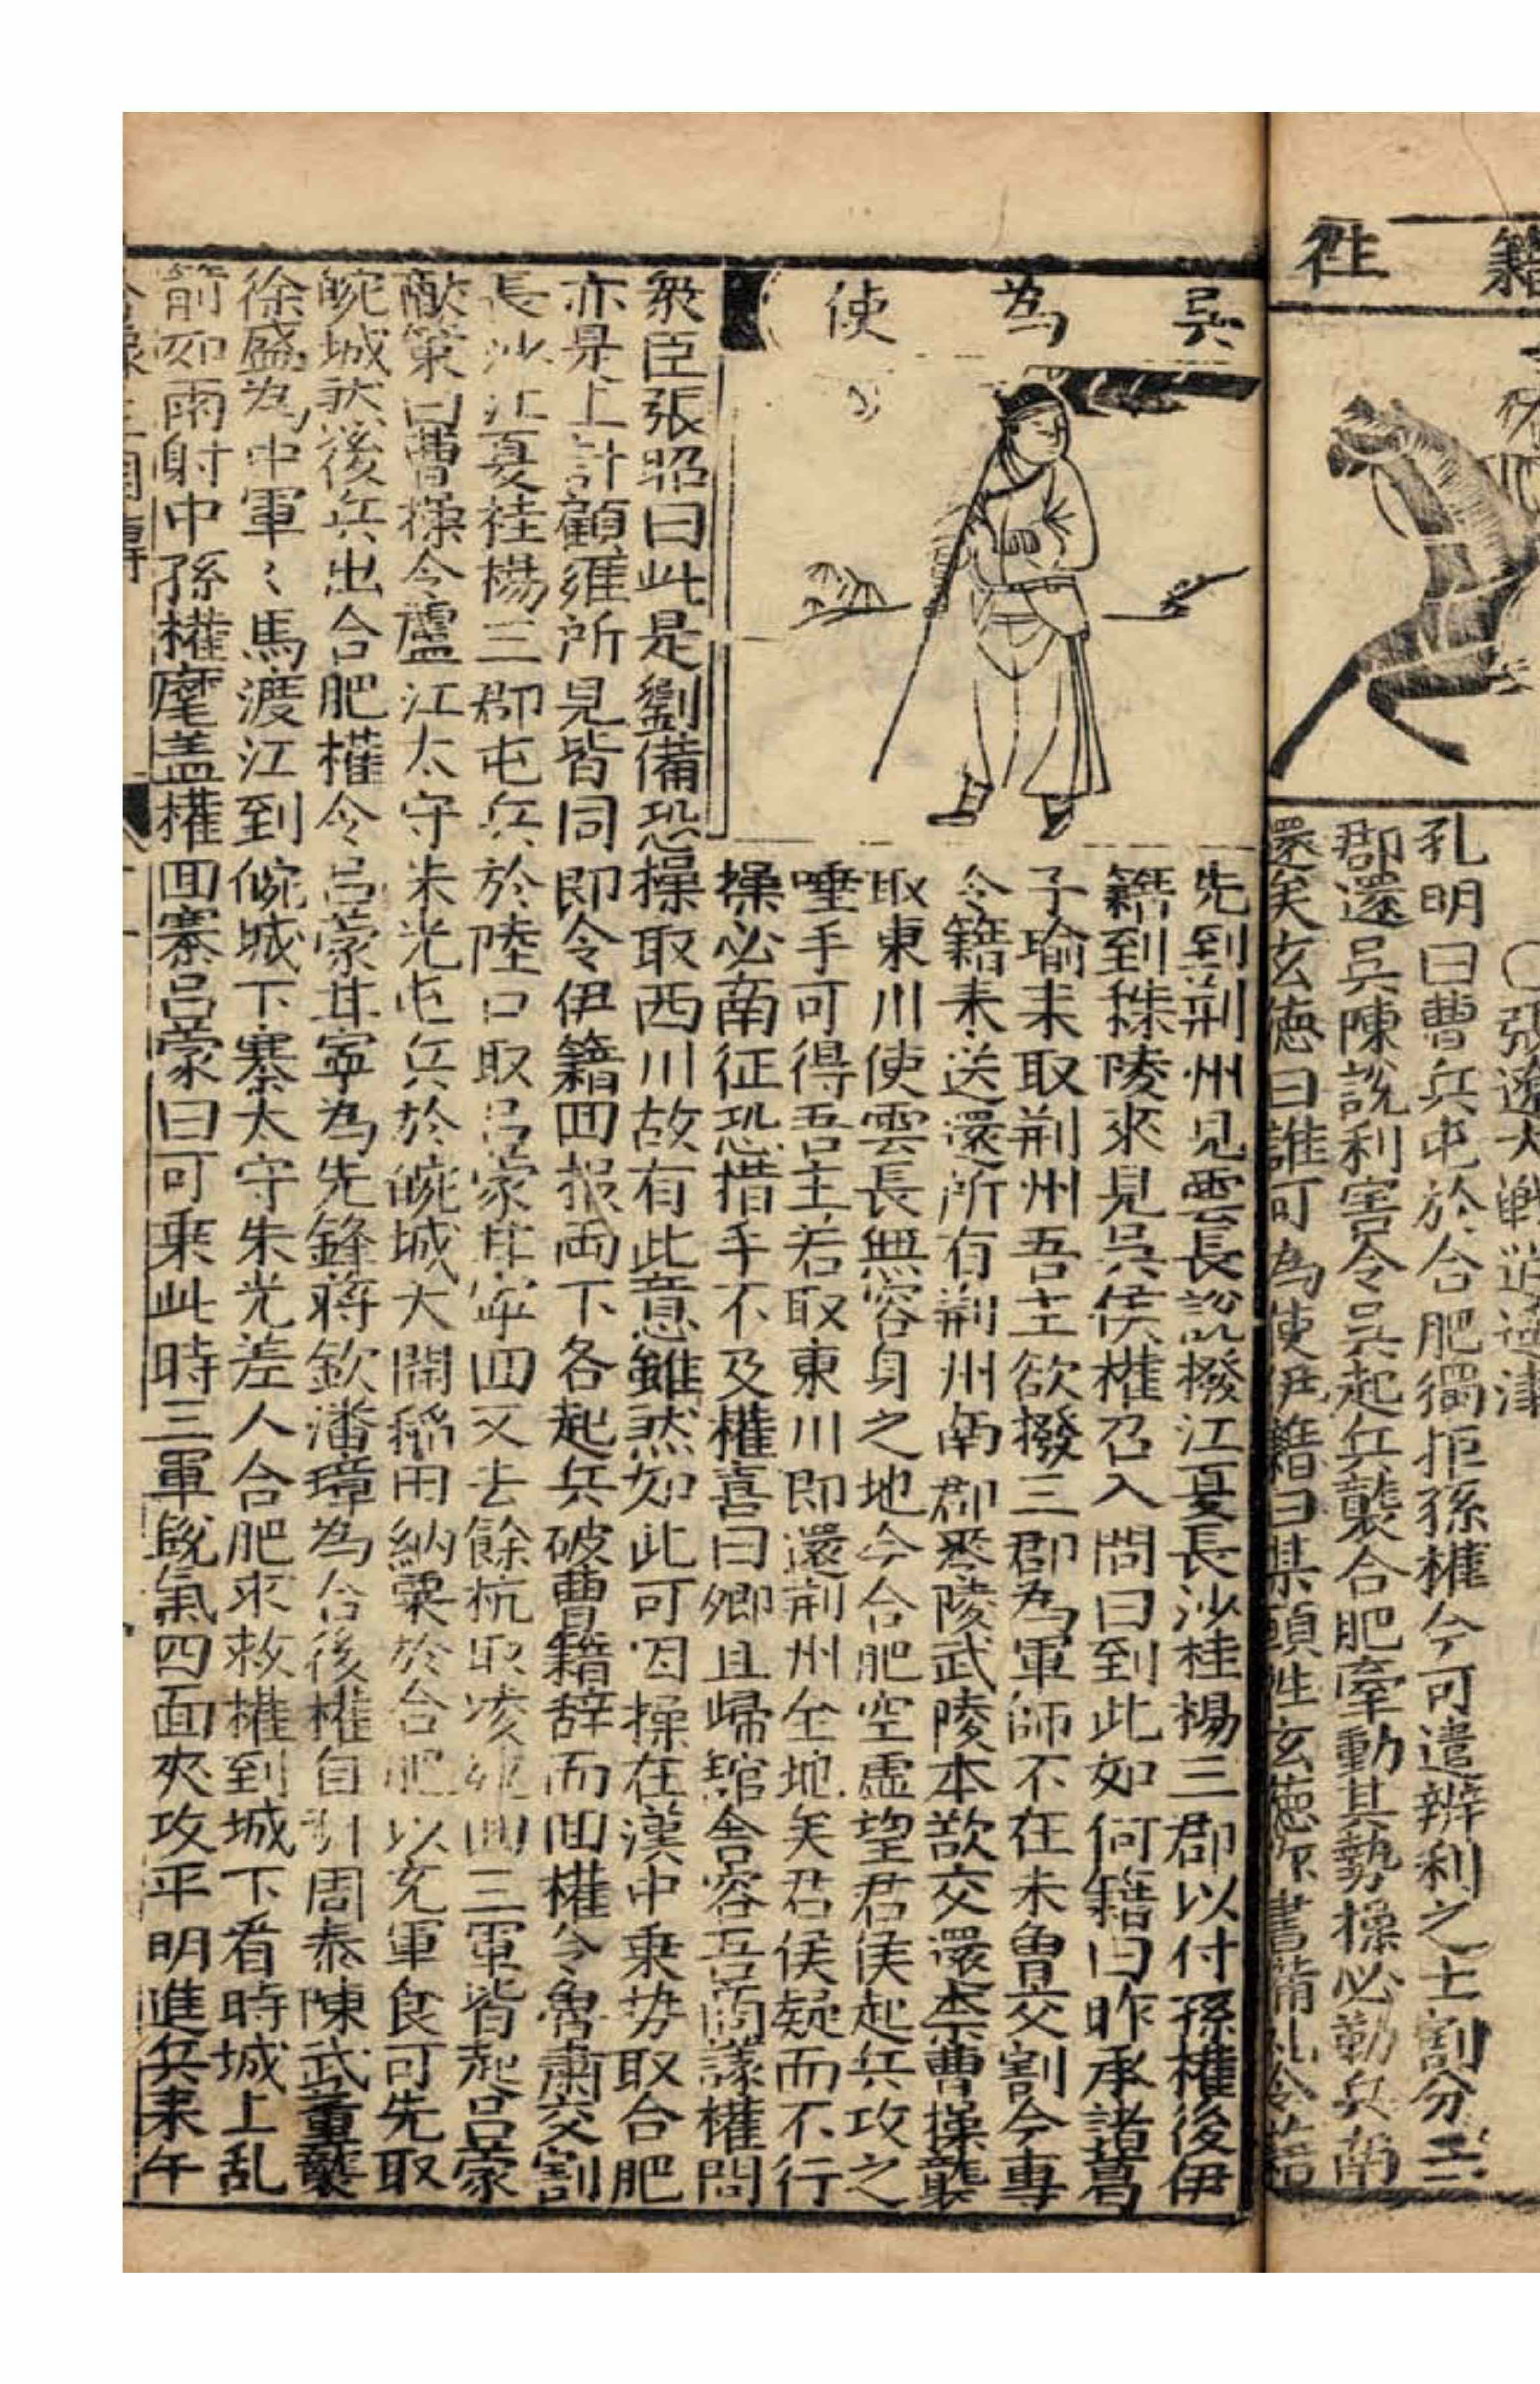 籍往
○張遼大戰逍遥津
孔明曰曹兵屯於合肥獨拒孫權今可遣辨利之士割分三
郡還吳陳說利害令吳起兵襲合肥牽動其勢操必勒兵南
還矣玄德曰誰可為使伊籍曰某願往玄德
吳為使
先到荆州見雲長說撥江夏長沙桂楊三郡以付孫權後伊
籍到秣陵來見吳侯權召入問曰到此如何籍曰昨承諸葛
子瑜来取荆州吾主欲撥三郡為軍師不在未魯交割今專
令籍来送還所有荆州南郡零陵武陵本欲交還柰曹操襲
取東川使雲長無容身之地今合肥空虛望君侯起兵攻之
唾手可得吾主若取東川即還荆州全地矣君侯疑而不行
操必南征恐措手不及權喜曰卿且歸舘舍容吾商議權問
衆臣張昭曰此是劉備恐操取西川故有此意雖然如此可因操在漢中乗势取合肥
亦是上計顧雍所見皆同即令伊籍囬报両下各起兵破曹籍辞而囬權令魯肅交割
長沙江夏桂楊三郡屯兵於陸口取吕蒙甘寧囬又去餘杭取凌統囬三軍皆起吕蒙
献策曰曹操令廬江太守朱光屯兵於皖城大開稲田納粟於合肥以充軍食可先取
皖城然後兵出合肥權令吕蒙甘寧為先鋒蒋欽潘璋為合後權自引周泰陳武董襲
徐盛為中軍〻馬渡江到皖城下寨太守朱光差人合肥求救權到城下看時城上乱
箭如雨射中孫權麾盖權囬寨吕蒙曰可乗此時三軍銳氣四面夾攻平明進兵来午